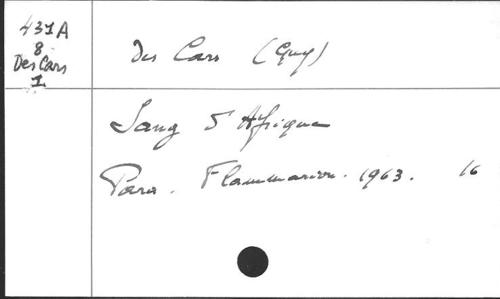 431A
8
Des Cars
1
Des Cars (Guy)
Sang d'Afrique
Paris. Flammarion. 1963. 16